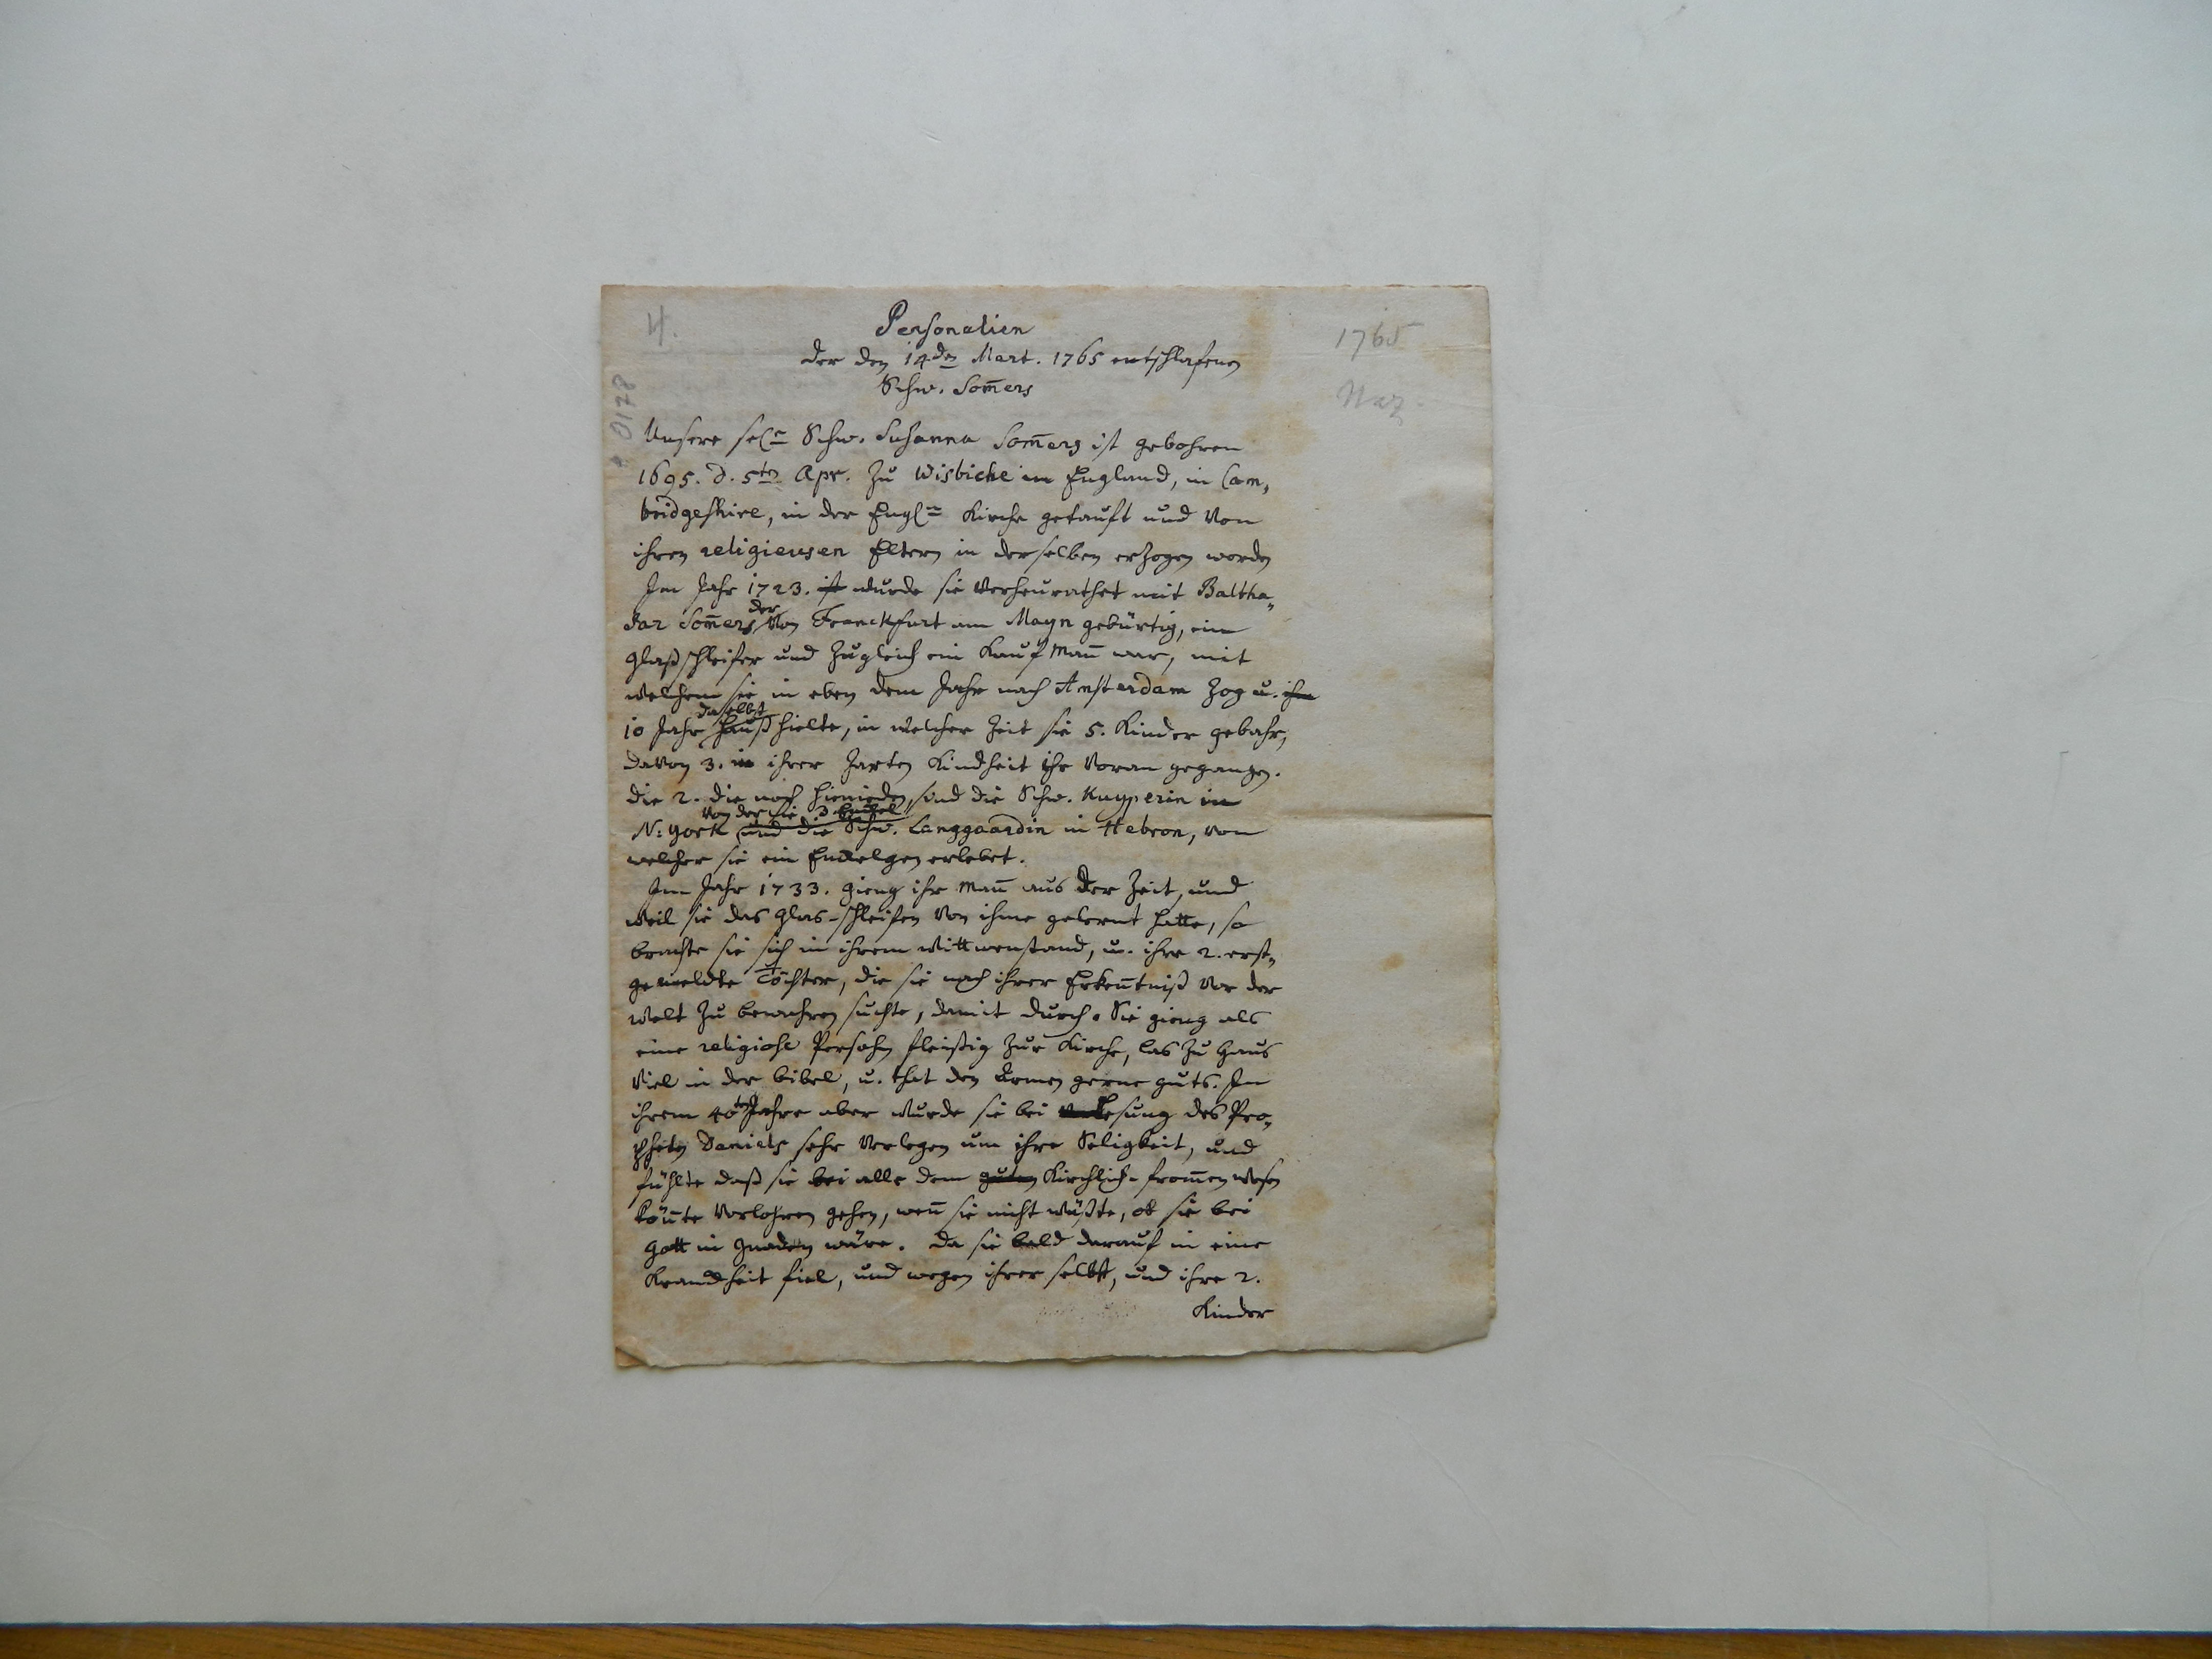 4.
1765
Naz.
0178
Personalien
der den 14den Mart. 1765 entschlafenen
Schw. Som̅ers
Unsere sel. Schw. Susanna Som̅ers ist gebohren
1695. d. 5ten Apr. zu Wisbiche in England, in Cam„
bridgeshire, in der Engl. Kirche getauft und von
ihren religieusen Eltern in derselben erzogen worden
Im Jahr 1723. ist wurde sie verheurathet mit Baltha„
der
sar Som̅ers, von Franckfurt am Mayn gebürtig, ein
Glaßschleifer und zugleich ein Kaufman̅ war, mit
welchem sie in eben dem Jahr nach Amsterdam zog u. ihm
daselbst
10 Jahr Hauß hielte, in welcher Zeit sie 5. Kinder gebahr,
davon 3. in ihrer zarten Kindheit ihr voran gegangen.
die 2. die noch hienieden, sind die Schw. Kuyperin in
von der sie 3 Enckel
N: York und die Schw. Langgaardin in Hebron, von
welcher sie ein Enckelgen erlebet.
Im Jahr 1733. gieng ihr Man̅ aus der Zeit, und
weil sie das Glas-schleifen von ihme gelernt hatte, so
brachte sie sich in ihrem Wittwenstand, u. ihre 2. erst„
gemeldte Töchter, die sie nach ihrer Erken̅tniß vor der
Welt zu bewahren suchte, damit durch. Sie gieng als
eine religiose Persohn fleißig zur Kirche, las zu Haus
viel in der Bibel, u. that den Armen gerne guts. In
ihrem 40ten Jahre aber wurde sie bei Lesung des Pro„
pheten Daniels sehr verlegen um ihre Seligkeit, und
fühlte daß sie bei alle dem guten Kirchlich-from̅en wesen
kön̅te verlohren gehen, wen̅ sie nicht wüßte, ob sie bei
Gott in Gnaden wäre. Da sie bald darauf in eine
Kranckheit fiel, und wegen ihrer selbst, und ihre 2.
Kinder